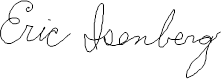 Eric Isenberg